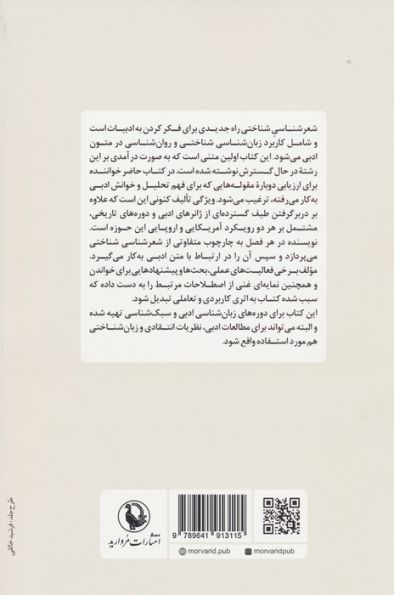 شعرشناسیِ شناختی راه جدیدی برای فکر کردن به ادبیات است
و شامل کاربرد زبان‌شناسی شناختی و روان‌شناسی در متون
ادبی می‌شود. این کتاب اولین متنی است که به صورت درآمدی بر این
رشتهٔ در حال گسترش نوشته شده است. در کتاب حاضر خواننده
برای ارزیابی دوبارهٔ مقوله‌هایی که برای فهم تحلیل و خوانش ادبی
به‌کار می‌رفته، ترغیب می‌شود. ویژگی تألیف کنونی این است که علاوه
بر دربرگرفتن طیف گسترده‌ای از ژانرهای ادبی و دوره‌های تاریخی،
مشتمل بر هر دو رویکرد آمریکایی و اروپایی این حوزه است.
نویسنده در هر فصل به چارچوب متفاوتی از شعرشناسی شناختی
می‌پردازد و سپس آن را در ارتباط با متن ادبی به‌کار می‌گیرد.
مؤلف برخی فعالیت‌های عملی، بحث‌ها و پیشنهادهایی برای خواندن
و همچنین نمایه‌ای غنی از اصطلاحات مرتبط را به دست داده که
سبب شده کتاب به اثری کاربردی و تعاملی تبدیل شود.
این کتاب برای دوره‌های زبان‌شناسی ادبی و سبک‌شناسی تهیه شده
و البته می‌تواند برای مطالعات ادبی، نظریات انتقادی و زبان‌شناختی
هم مورد استفاده واقع شود.
طرح جلد: فرشید خالقی
انتشارات مروارید
9 789641 913115
morvarid.pub
morvaridpub